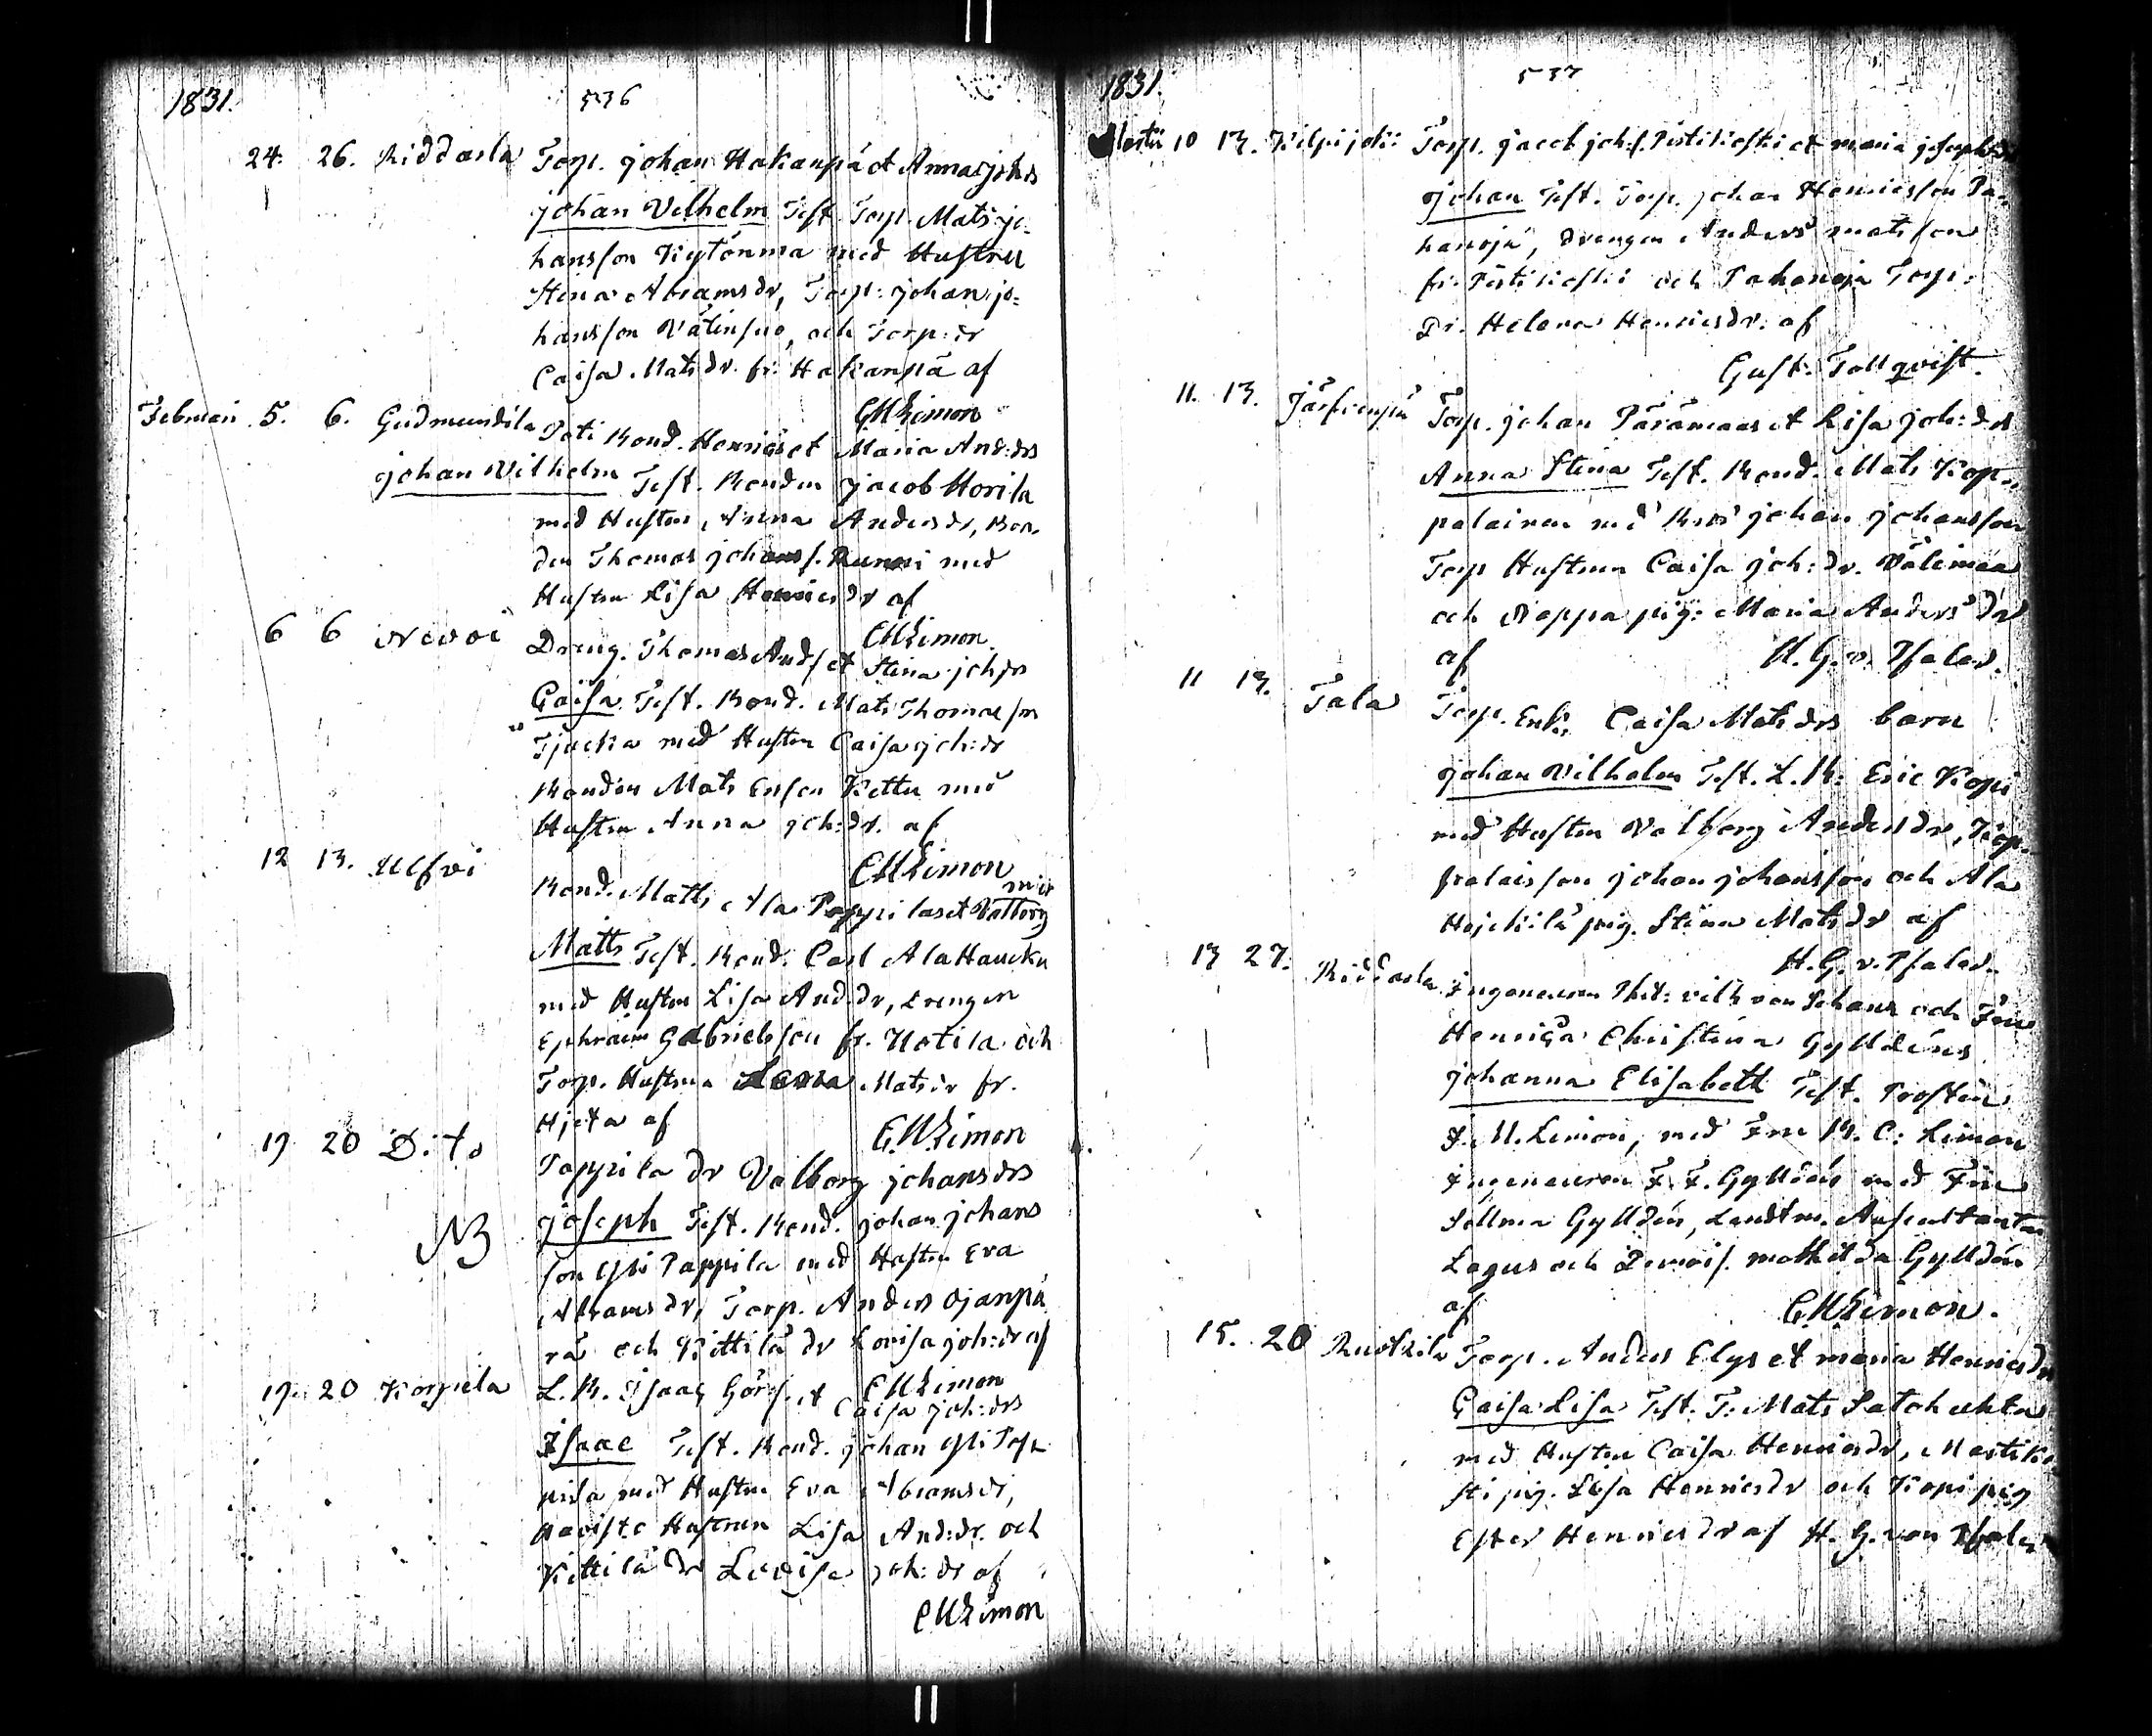 1831. 536
24. 26. Riddasla Torp. Johan Hakanpä et Anna Johds
Johan Vilhelm Test. Torp. Mats Jo-
hansson Kytönma med Hustru
Stina Abramsdr, Torp: Johan Jo-
hansson Välinsuo, och Torp: dr
Caisa Matsdr fr: Hakanpä af
CMLimon
Februari 5. 6. Gudmundila Poti Bond. Henric et Maria And:drs
Johan Vilhelm Test. Bonden Jacob Horila
med Hustru Anna Andersdr, Bon-
den Thomas Johans s. Runni med
Hustru Lisa Henricsdr af
CMLimon
6 6 Dreng. Thomas And s et Stina Johdrs
Caisa Test. Bond. Mats Thomasson
med Hustru Caisa Joh:dr
Bonden Mats Ersson Kettu med
Hustru Anna Joh:dr. af
CMLimon
12 13. Ulfvi Bond. Matts Ala Pappilas et Valborg
Matts Test. Bond. Carl Ala Haucka
med Hustru Lisa And:dr, drengen
Ephraim Gabrielsson fr. Uotila och
Torp. Hustrun Matsdr fr.
Hjeta af
CMLimon
19 20 Dito Pappila dr Valborg Johansdrs
NB Joseph Test. Bond. Johan Johans
son Yli Pappila med Hustru Eva
Abramsdr, Torp. Anders Ojanpä
rä och Kittilä dr Lovisa Joh:dr af
CMLimon
19. 20 Korpiela L. B. Isaac Görs s. et Caisa Joh:drs
Isaac Test. Bond. Johan Yli Pap-
pila med Hustru Eva Abramsdr,
Hustrun Lisa And:dr. och
Kittilä dr Lovisa Joh:dr af
CMLimon
1831. 537
Martii 10 13. Kilpijoki Torp. Jacob Joh:s. Pertikoski et Maria Josephdrs
Johan Test. Torp. Johan Henricsson Pa-
hanoja, drengen Anders Matsson
fr: Pertikoski och Pahanoja Torp.
Dr. Helena Henricsdr. af
Gust: Tollqvist.
11. 13. Järfvenpä Torp. Johan Pärämaas et Lisa Joh:drs
Anna Stina Test. Bond. Mats Kop-
palainen med Johan Johansson
Torp Hustrun Caisa Joh:dr. Välimaa
och pig: Maria Andersdr
af H. G. v. Pfaler.
11 13. Tala Torp. Enk. Caisa Matsdrs barn
Johan Vilhelm Test. L. B: Eric Kopi
med Hustru Valborg Andersdr, Kop-
palaisson Johan Johansson och Ala
Hojckilä pig. Stina Matsdr af
H. G. v. Pfaler.
13 27. Riddasla Ingeneuren Vilh von Schanz och Fru
Henrica Christina Gylldéns
Johanna Elisabeth Test. Prosten
C. M. Limon, med Fru B. C: Limon
Ingeneuren F. F. Gylldén med Fru
Sellma Gylldén, Landtm. Auscultanten
Lagus och Demois. Mathilda Gylldén
af CMLimon.
15. 20 Ruotzila Torp. Anders Elys et Maria Henricsdrs
Caisa Lisa Test. T: Mats Satohuhta
med Hustru Caisa Henricsdr, Martiko
sti pig. Lisa Henricsdr och Kopi pig
Ester Henricsdr af H. G. von Pfaler